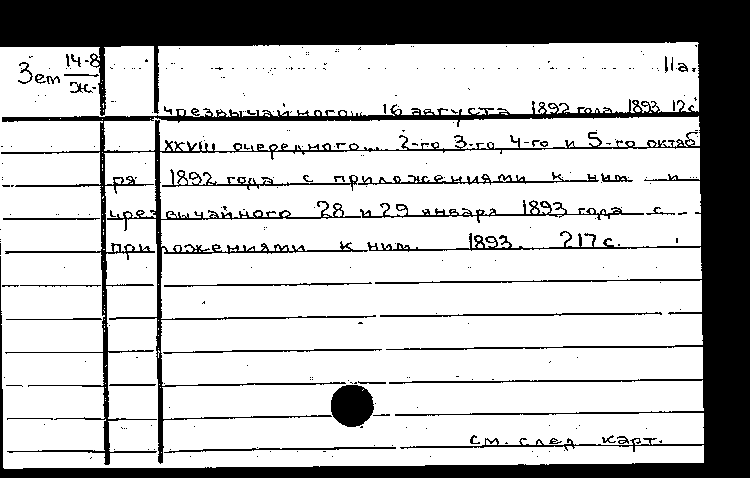 Зем 14-8
Ж-
11а.
чрезвычайного... 16 августа 1892 года. 1893 12с
XXVIII очередного... 2-го, 3-го, 4-го и 5-го октяб
ря 1892 года с приложениями к ним и
чрезвычайного 28 и 29 января 1893 года с
приложениями к ним. 1893. 217с.
см. след карт.